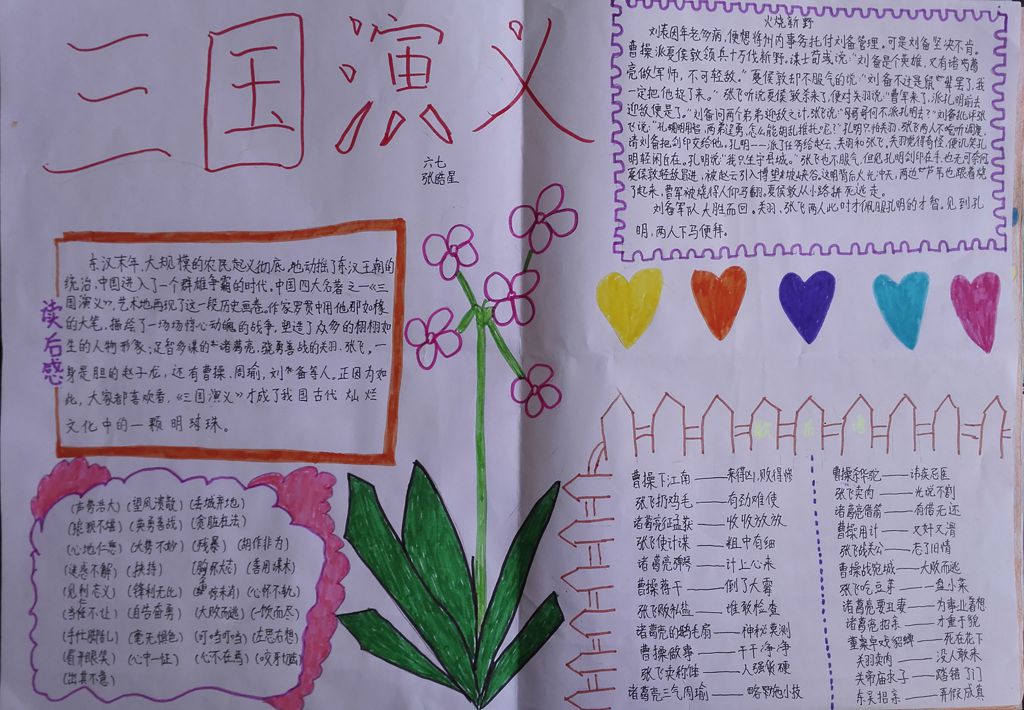 三国演义
六七
张皓星
火烧新野
刘表因年老多病,便想将州内事务托付刘备管理。可是刘备坚决不肯。
曹操派夏侯敦领兵十万伐新野,谋士荀彧说:“刘备是个英雄,又有诸葛
亮做军师,不可轻敌。”夏侯敦却不服气的说:“刘备不过是鼠辈罢了,我
一定把他捉了来。”张飞听说夏侯敦杀来了,便对关羽说:“曹军来了,派孔明前去
迎敌便是了。”刘备问两个弟弟迎敌之计,张飞说:“哥哥何不派孔明去?”刘备批评张
飞说:“孔明用智,两弟逞勇,怎么能胡乱推托呢?”孔明只怕关羽、张飞两人不听调度,
请刘备把剑印交给他,孔明一一派了任务给赵云、关羽和张飞,关羽觉得奇怪,便讥笑孔
明轻闲自在。孔明说:“我只坐守县城。”张飞也不服气,但见孔明剑印在手,也无可奈何
夏侯敦轻敌冒进,被赵云引入博望坡峡谷。这时背后火光冲天,两边芦苇也跟着烧
了起来,曹军被烧得人仰马翻。夏侯敦从小路拼死逃走。
刘备军队大胜而回。关羽、张飞两人此时才佩服孔明的才智。见到孔
明,两人下马便拜。
读后感
东汉末年,大规模的农民起义彻底地动摇了东汉王朝的
统治,中国进入了一个群雄争霸的时代,中国四大名著之一《三
国演义》,艺术地再现了这一段历史画卷。作家罗贯中用他那如椽
的大笔,描绘了一场场惊心动魄的战争,塑造了众多的栩栩如
生的人物形象:足智多谋的诸葛亮,骁勇善战的关羽、张飞,一
身是胆的赵子龙,还有曹操、周瑜,刘备等人。正因为如
此,大家都喜欢看,《三国演义》才成了我国古代灿烂
文化中的一颗明珍珠。
(声势浩大)(望风溃散)(弃城弃地)
(狼狈不堪)(英勇善战)(贪脏枉法)
(心地仁慈)(大势不妙)(残暴)(胡作非为)
(迷惑不解)(扶持)(胸怀大志)(善用谋术)
(见利忘义)(锋利无比)(惊未有)(心怀不轨)
(当任不让)(自告奋勇)(大败而逃)(一饮而尽)
(手忙脚乱)(毫无惧色)(叮当叮当)(左思右想)
(眉开眼笑)(心中一怔)(心不在焉)(咬牙切齿)
(出其不意)
歇后语
曹操下江南——来得凶,败得惨
张飞扔鸡毛——有劲难使
诸葛亮征孟获——收收放放
张飞使计谋——粗中有细
诸葛亮弹琴——计上心来
曹操蒋干——倒了大霉
张飞贩刺猬——谁敢检查
诸葛亮的鹅毛扇——神秘莫测
曹操做事——干干净净
张飞卖秤锤——人强货硬
诸葛亮三气周瑜——略施小技
曹操杀华佗——讳疾忌医
张飞卖肉——光说不割
诸葛亮借箭——有借无还
曹操用计——又奸又滑
张飞战关公——忘了旧情
曹操战宛城——大败而逃
张飞吃豆芽——一盘小菜
诸葛亮娶丑妻——为事业着想
诸葛亮招亲——才重于貌
董卓早戏貂蝉——死在花下
关羽卖肉——没人敢来
关帝庙求子——踏错了门
东吴招亲——弄假成真